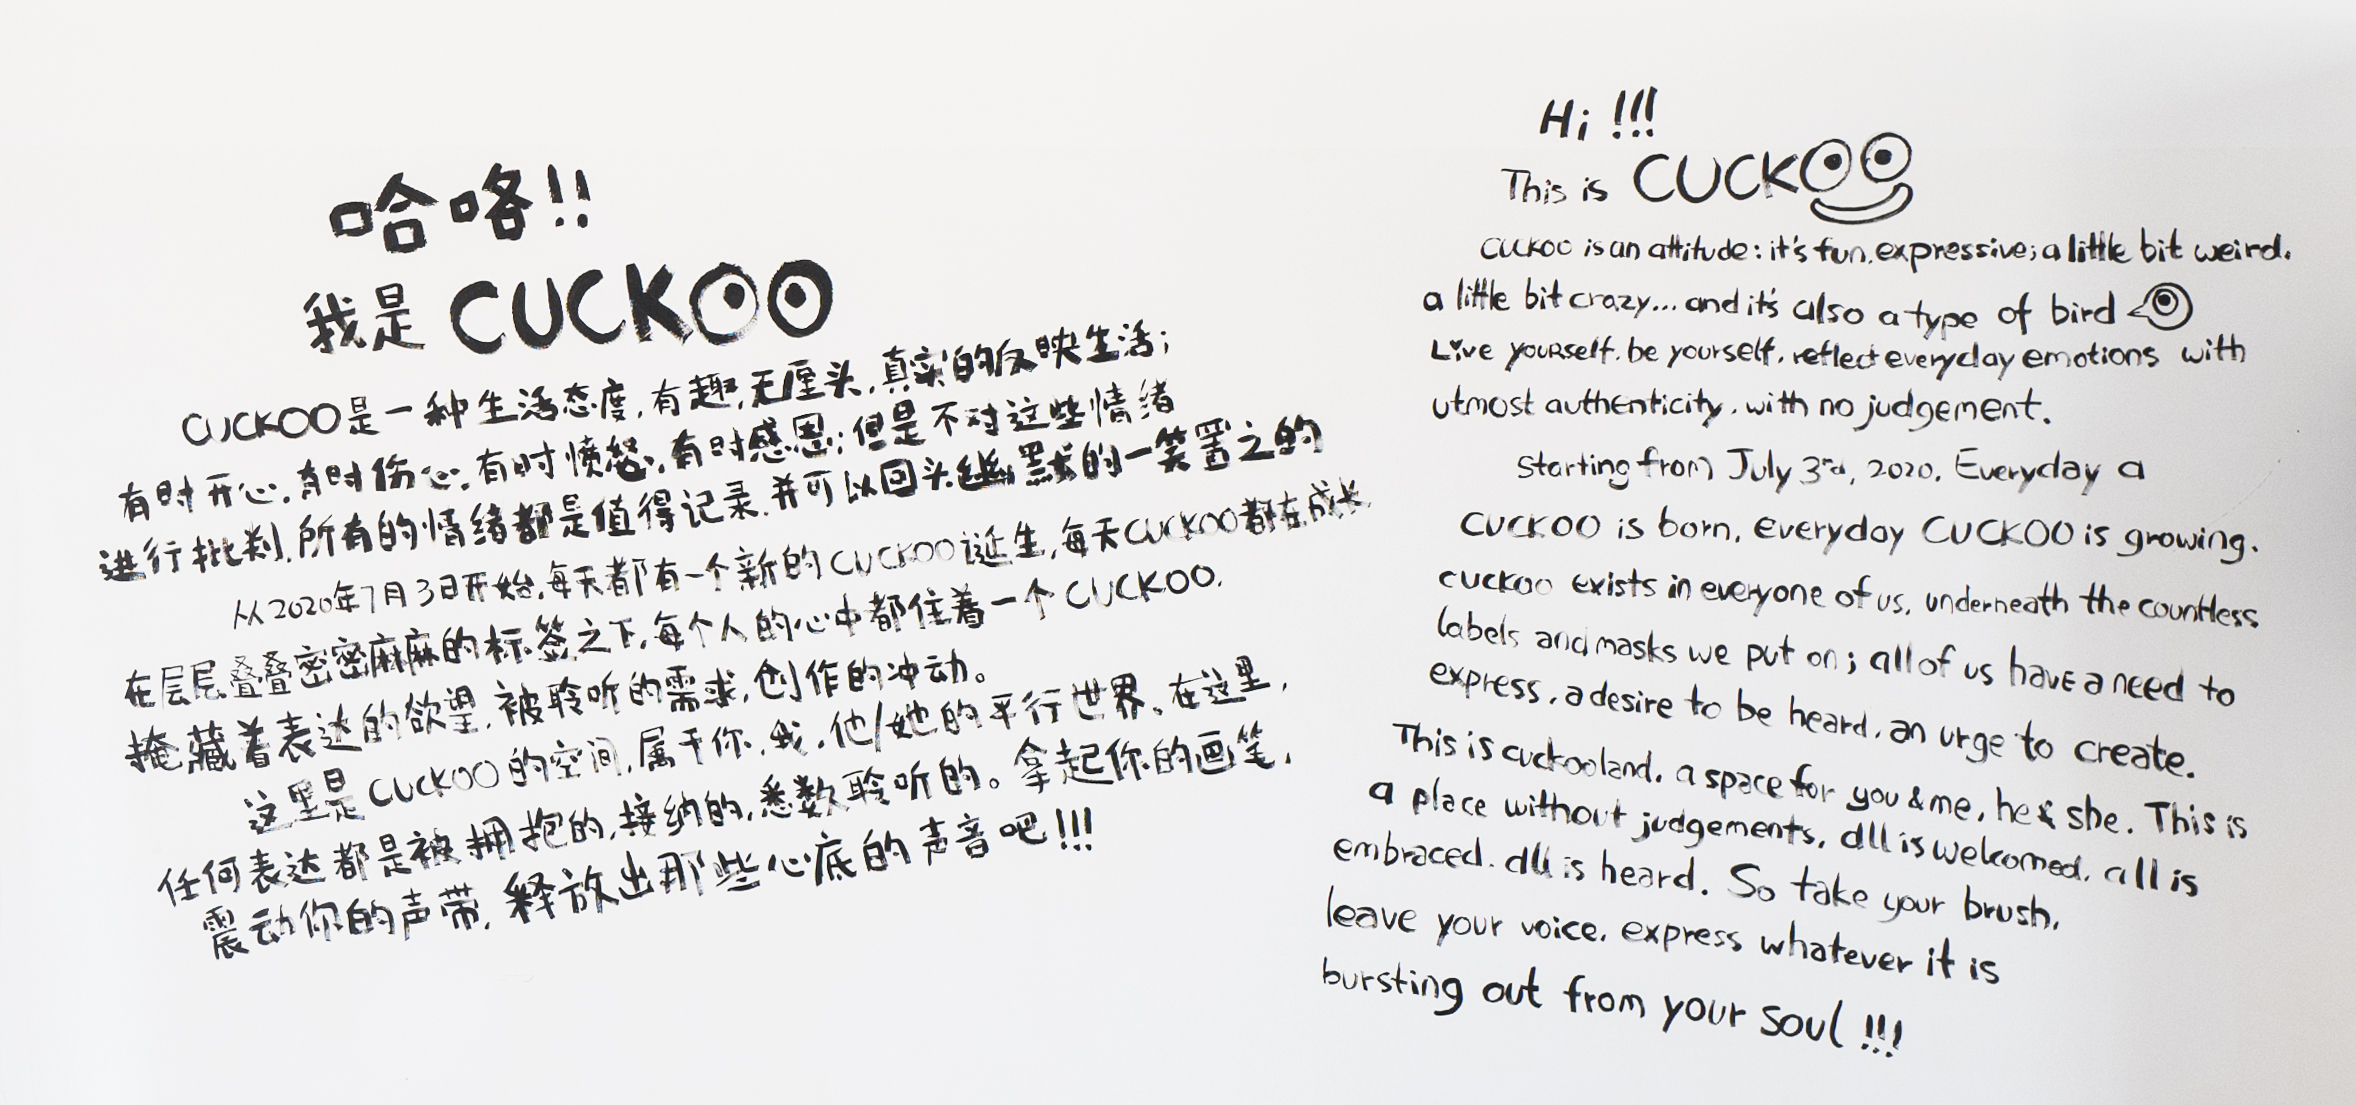 哈咯!!
我是 CUCKOO
CUCKOO是一种生活态度,有趣,无厘头,真实的反映生活;
有时开心,有时伤心,有时愤怒,有时感恩;但是不对这些情绪
进行批判,所有的情绪都是值得记录,并可以回头幽默的一笑置之的
从2020年7月3日开始,每天都有一个新的CUCKOO诞生,每天CUCKOO都在成长
在层层叠叠密密麻麻的标签之下,每个人的心中都住着一个CUCKOO.
掩藏着表达的欲望,被聆听的需求,创作的冲动。
这里是CUCKOO的空间,属于你,我,他/她的平行世界。在这里,
任何表达都是被拥抱的,接纳的,悉数聆听的。拿起你的画笔,
震动你的声带,释放出那些心底的声音吧!!!
Hi !!!
This is CUCKOO
CUCKOO is an attitude: it's fun, expressive; a little bit weird.
a little bit crazy... and it's also a type of bird
Live yourself, be yourself, reflect everyday emotions with
utmost authenticity, with no judgement.
Starting from July 3rd, 2020, Everyday a
CUCKOO is born, everyday CUCKOO is growing.
cuckoo exists in everyone of us, underneath the countless
labels and masks we put on; all of us have a need to
express, a desire to be heard, an urge to create.
This is cuckooland, a space for you & me, he & she. This is
a place without judgements, all is welcomed, all is
embraced, all is heard. So take your brush,
leave your voice, express whatever it is
bursting out from your soul !!!